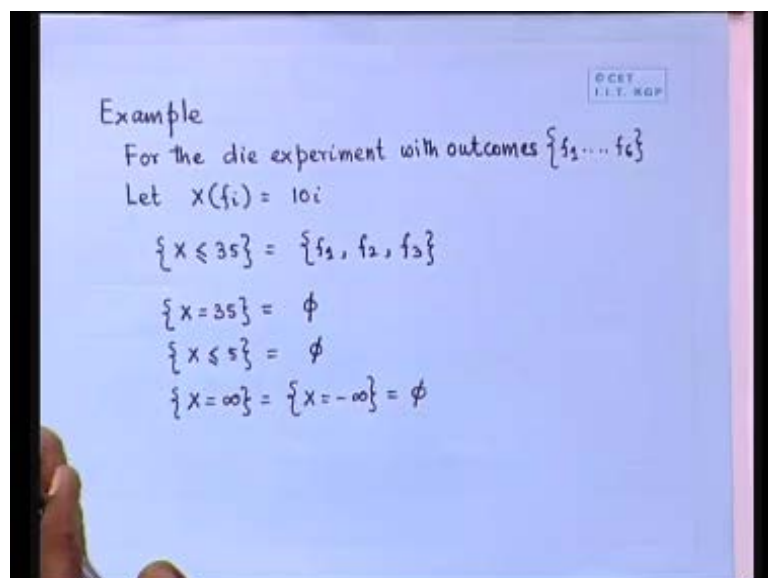 © CET
I.I.T. KGP
Example
For the die experiment with outcomes {f₁ .... f₆}
Let X(fi) = 10i
{X ⩽ 35} = {f₁, f₂, f₃}
{X = 35} = ϕ
{X ⩽ 5} = ϕ
{X = ∞} = {X = -∞} = ϕ